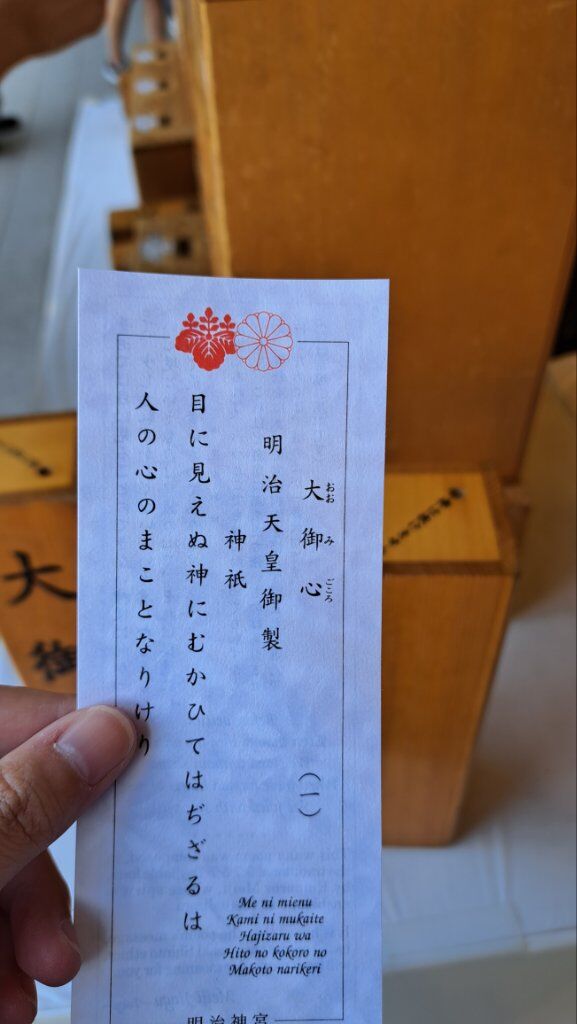 大御心
おおみごころ
(一)
明治天皇御製
神祇
目に見えぬ神にむかひてはぢざるは
人の心のまことなりけり
Me ni mienu
Kami ni mukaite
Hajizaru wa
Hito no kokoro no
Makoto narikeri
明治神宮
大